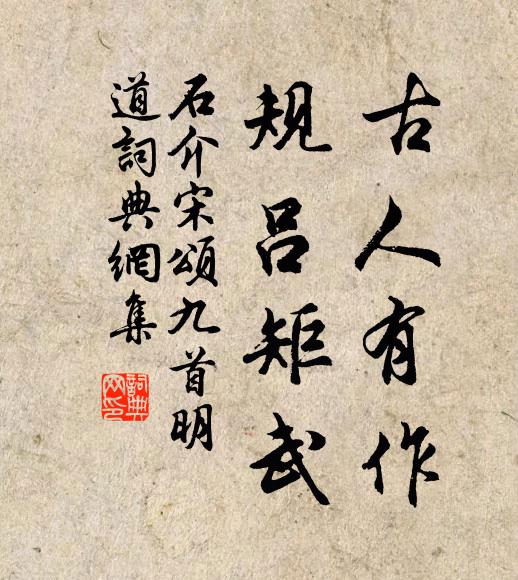 古人有作
規呂矩武
石介宋頌九首明
道詞典網集
詞典网印